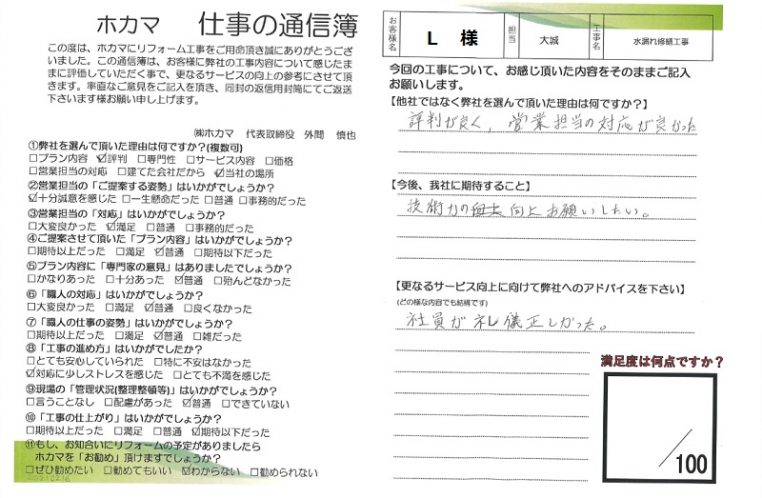 ホカマ 仕事の通信簿
この度は、ホカマにリフォーム工事をご用命頂き誠にありがとうござ
いました。この通信簿は、お客様に弊社の工事内容について感じたま
まに評価していただく事で、更なるサービスの向上の参考にさせて頂
きます。率直なご意見をご記入を頂き、同封の返信用封筒にてご返送
下さいます様お願い申し上げます。
㈱ホカマ 代表取締役 外間 慎也
①弊社を選んで頂いた理由は何ですか?(複数可)
□プラン内容 ☑評判 □専門性 □サービス内容 □価格
□営業担当の対応 □建てた会社だから ☑当社の場所
②営業担当の「ご提案する姿勢」はいかがでしょうか?
☑十分誠意を感じた □一生懸命だった □普通 □事務的だった
③営業担当の「対応」はいかがでしょうか?
□大変良かった ☑満足 □普通 □事務的だった
④ご提案させて頂いた「プラン内容」はいかがでしょうか?
□期待以上だった □満足 ☑普通 □期待以下だった
⑤プラン内容に「専門家の意見」はありましたでしょうか?
□かなりあった □十分あった ☑普通 □殆んどなかった
⑥「職人の対応」はいかがでしょうか?
□大変良かった □満足 ☑普通 □良くなかった
⑦「職人の仕事の姿勢」はいかがでしょうか?
□期待以上だった □満足 ☑普通 □雑だった
⑧「工事の進め方」はいかがでしたか?
□とても安心していられた □特に不安はなかった
☑対応に少しストレスを感じた □とても不満を感じた
⑨現場の「管理状況(整理整頓等)」はいかがでしょうか?
□言うことなし □配慮があった ☑普通 □できていない
⑩「工事の仕上がり」はいかがでしょうか?
□期待以上だった □満足 □普通 ☑期待以下だった
⑪もし、お知合いにリフォームの予定がありましたら
ホカマを「お勧め」頂けますでしょうか?
□ぜひ勧めたい □勧めてもいい ☑わからない □勧められない
お客様名 L 様 担当 大城 工事名 水漏れ修繕工事
今回の工事について、お感じ頂いた内容をそのままご記入
お願いします。
【他社ではなく弊社を選んで頂いた理由は何ですか?】
評判が良く、営業担当の対応が良かった
【今後、我社に期待すること】
技術力の向上お願いしたい。
【更なるサービス向上に向けて弊社へのアドバイスを下さい】
(どの様な内容でも結構です)
社員が礼儀正しかった。
満足度は何点ですか?
/100